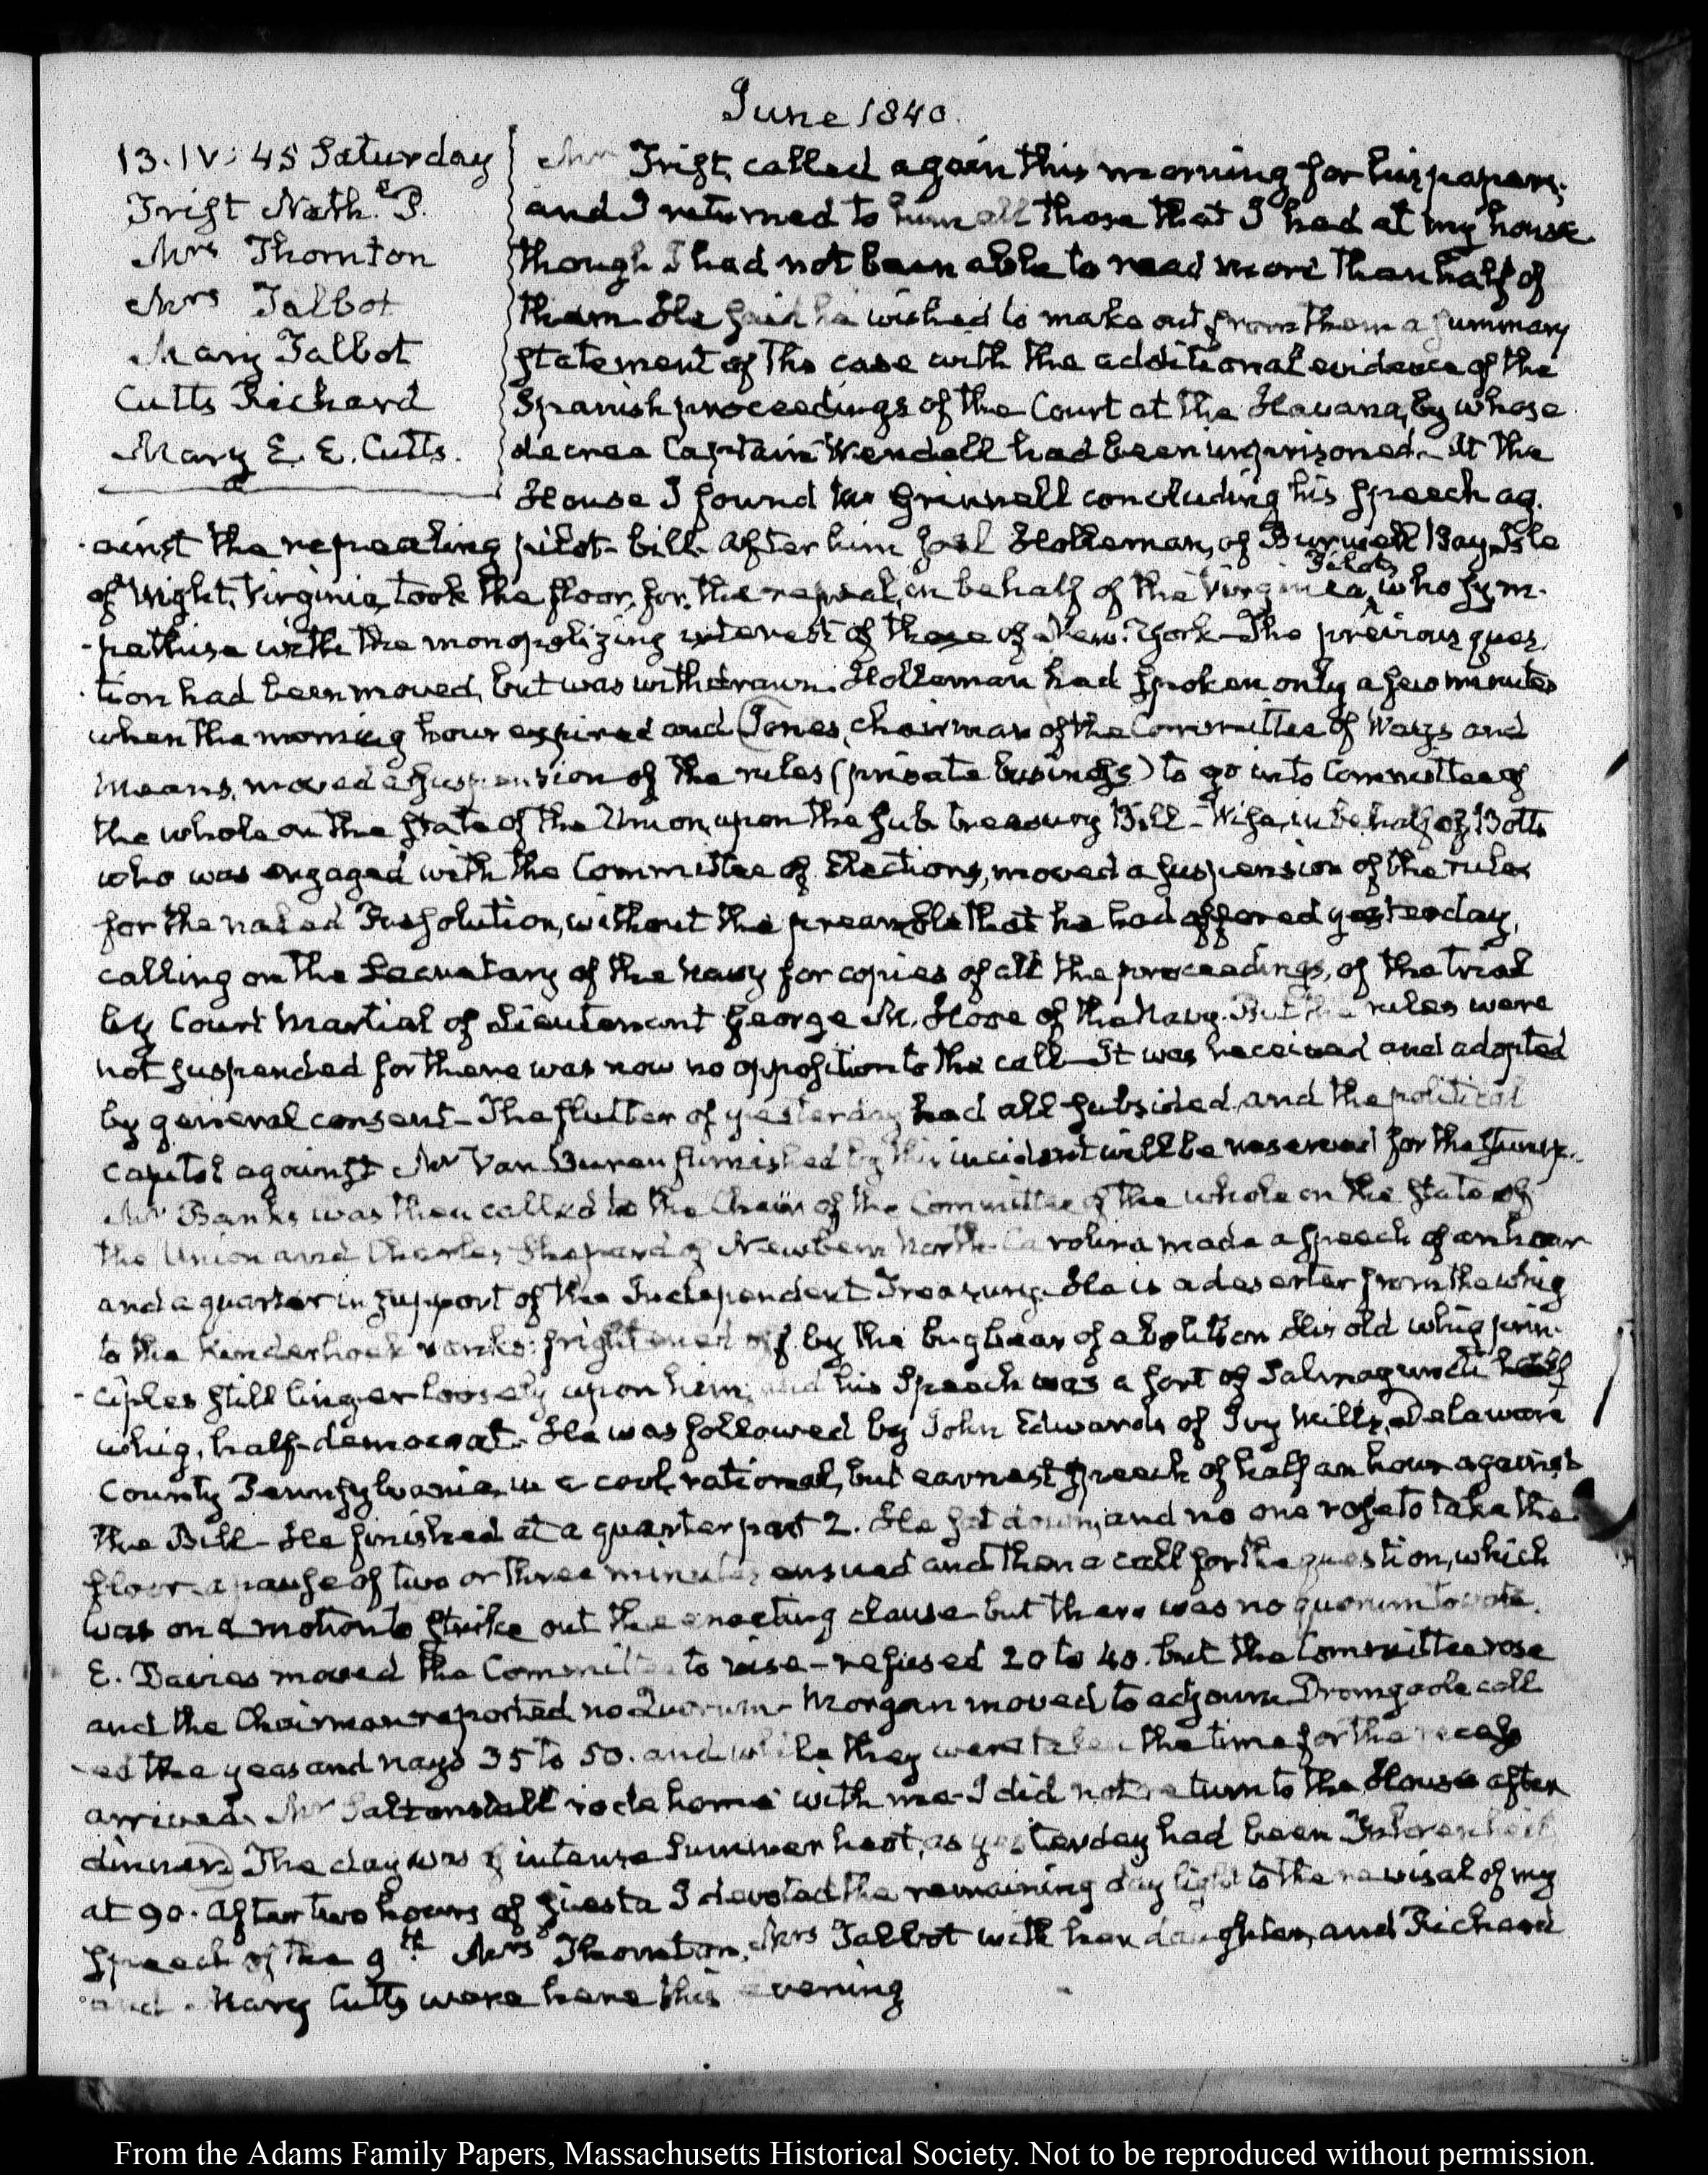 June 1840.
13. IV: 45 Saturday
Trist Nath.l P.
Mrs Thornton
Mrs Talbot
Mary Talbot
Cutts Richard
Mary E. E. Cutts.
Mr Trist called again this morning for his papers;
and I returned to him all those that I had at my house
though I had not been able to read more than half of
them. He said he wished to make out from them a summary
statement of the case with the additional evidence of the
Spanish proceedings of the Court at the Havana, by whose
decree Captain Wendell had been imprisoned. At the
House I found Mr Grinnell concluding his speech ag-
ainst the repealing pilot-bill. After him Joel Holleman, of Burwell Bay, Isle
of Wight, Virginia, took the floor, for the repeal, in behalf of the Virginia Pilots, who sym-
-pathise with the monopolizing interest of those of New-York. The previous ques-
-tion had been moved, but was withdrawn. Holleman had spoken only a few minutes
when the morning hour expired and Jones, chairman of the Committee of Ways and
Means, moved a suspension of the rules (private business) to go into Committee of
the whole on the state of the Union, upon the Sub-treasury Bill - Wise, in behalf of Botts
who was engaged with the Committee of Elections, moved a suspension of the rules
for the naked Resolution, without the preamble that he had offered yesterday,
calling on the Secretary of the Navy for copies of all the proceedings, of the trial
by Court Martial of Lieutenant George M. Hooe of the Navy. But the rules were
not suspended for there was now no opposition to the call - It was received and adopted
by general consent - The flutter of yesterday had all subsided, and the political
capital against Mr Van Buren furnished by this incident will be reserved for the stump.
Mr Banks was then called to the Chair of the Committee of the whole on the state of
the Union and Charles Shepard of Newbern North-Carolina made a speech of an hour
and a quarter in support of the Independent Treasury. He is a deserter from the whig
to the Kinderhook ranks: frightened off by the bugbear of abolition. His old whig prin-
-ciples still linger loosely upon him; and his speech was a sort of Salmagundi half
whig, half-democrat. He was followed by John Edwards of Ivy Mills, Delaware
County Pennsylvania, in a cool, rational, but earnest speech of half an hour against
the Bill - He finished at a quarter past 2. He sat down, and no one rose to take the
floor - a pause of two or three minutes ensued and then a call for the question, which
was on a motion to strike out the enacting clause - but there was no quorum to vote.
E. Davies moved the Committee to rise - refused 20 to 40. but the Committee rose
and the Chairman reported no Quorum - Morgan moved to adjourn. Dromgoole call
-ed the yeas and nays 35 to 50. and while they were taken the time for the recess
arrived. Mr Saltonstall rode home with me - I did not return to the House after
dinner. The day was of intense Summer heat, as yesterday had been Fahrenheit
at 90. After two hours of siesta I devoted the remaining day light to the revisal of my
speech of the 9th Mrs Thornton, Mrs Talbot with her daughter, and Richard
and Mary Cutts were here this evening
From the Adams Family Papers, Massachusetts Historical Society. Not to be reproduced without permission.